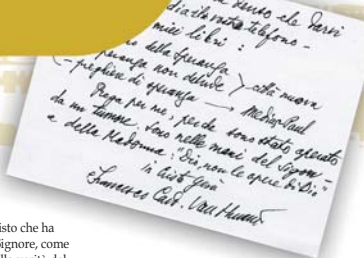 senso che darvi
telefono -
miei libri :
della speranza
speranza non delude città nuova
- preghiere di speranza → MediasPaul
Prega per me, perché sono stato operato
da un tumore. Sono nelle mani del Signore
e della Madonna : "Dio, non le opere di Dio"
in Gesù
Francesco Card. Van Thuan
isto che ha
Signore, come